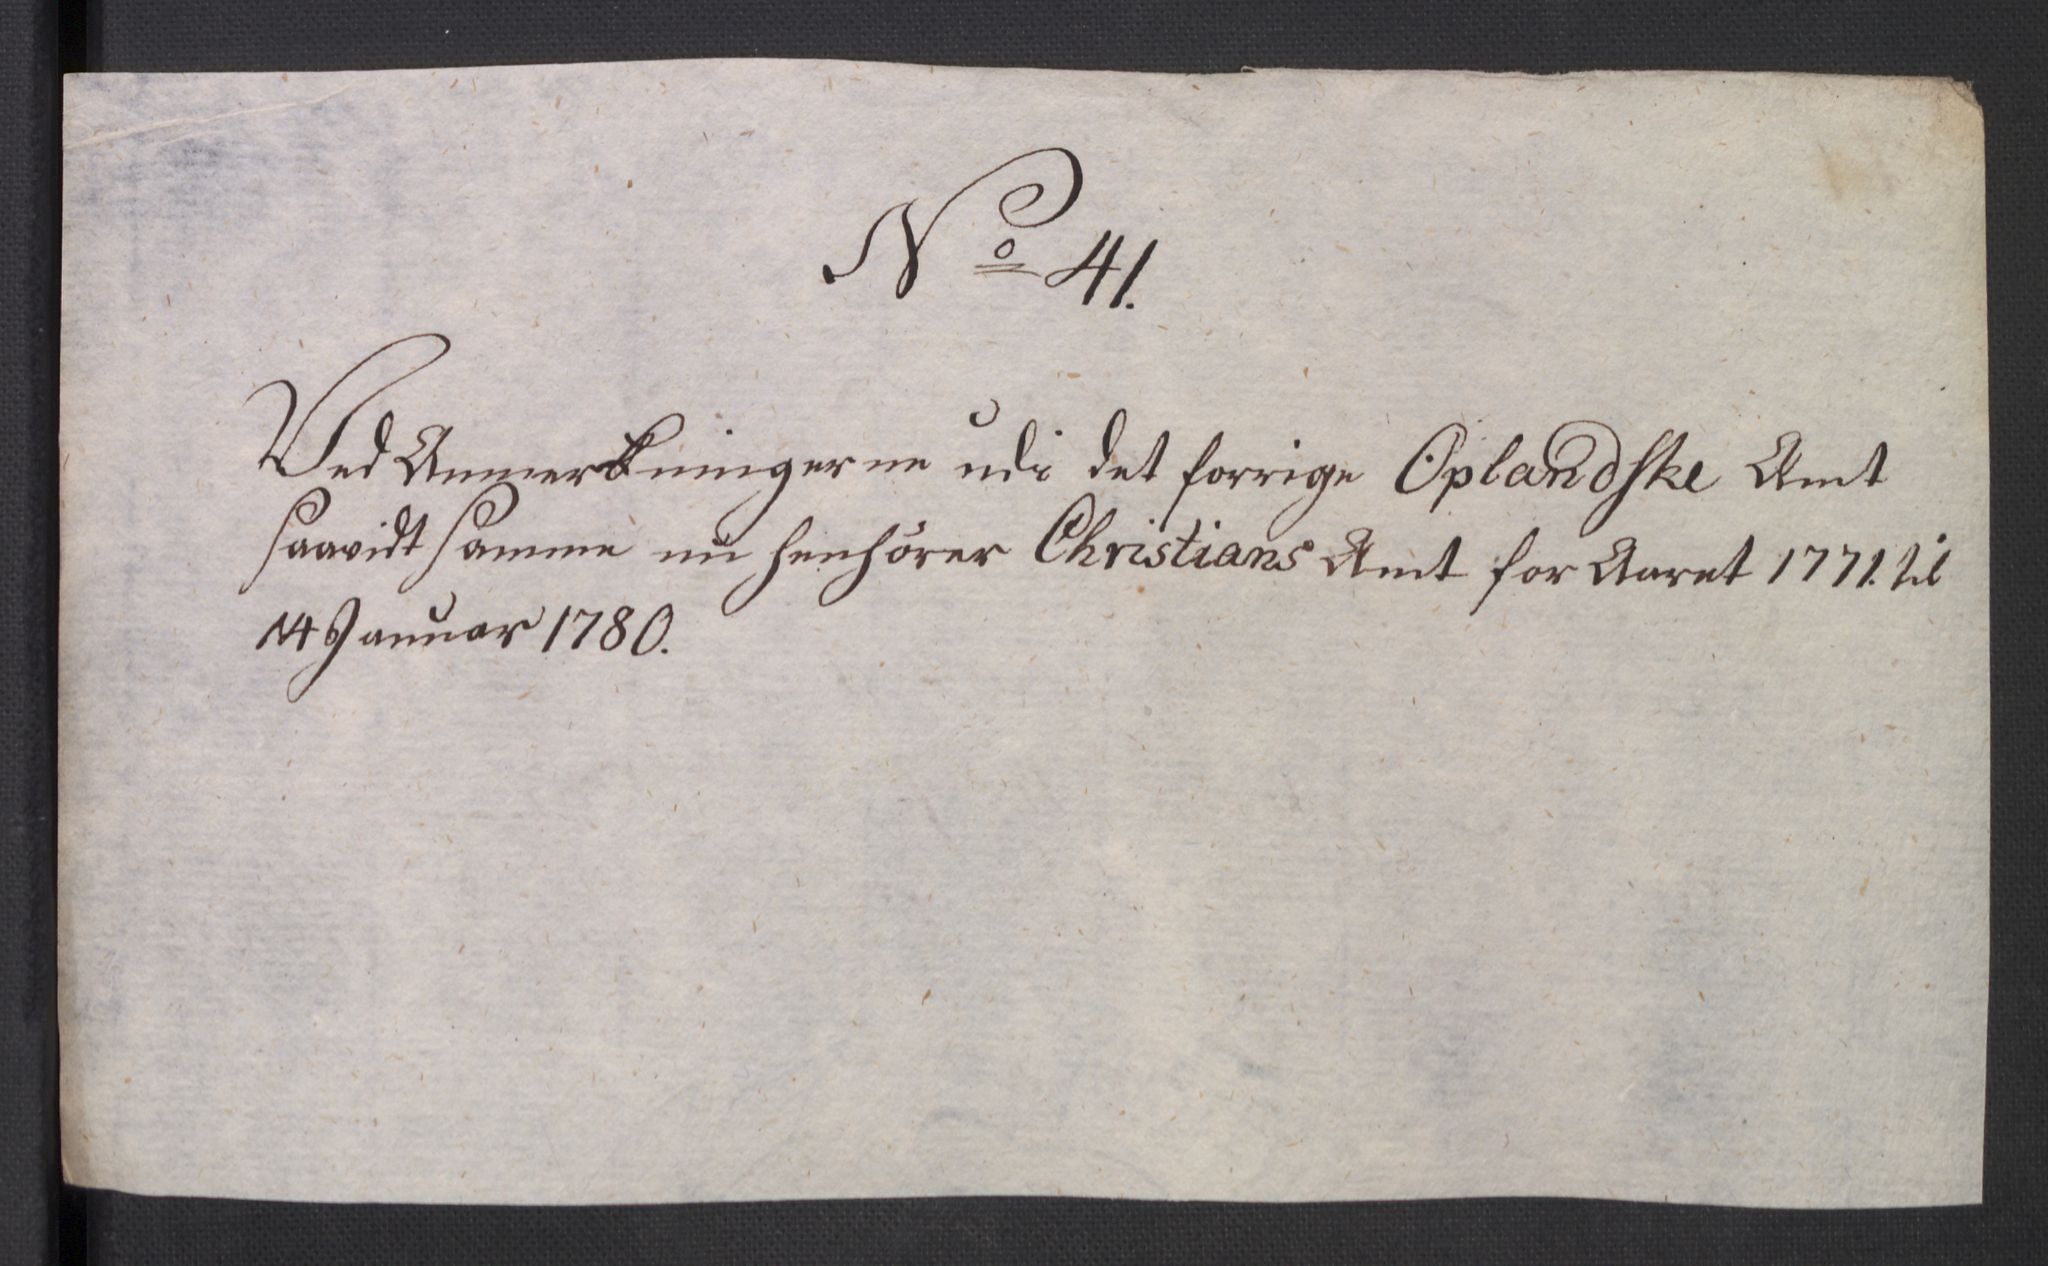 No 41.
Ved Anmerkningerne udi det forrige Oplandske Amt
saavidt samme nu henhörer Christians Amt for Aaret 1771. til
14 Januar 1780.